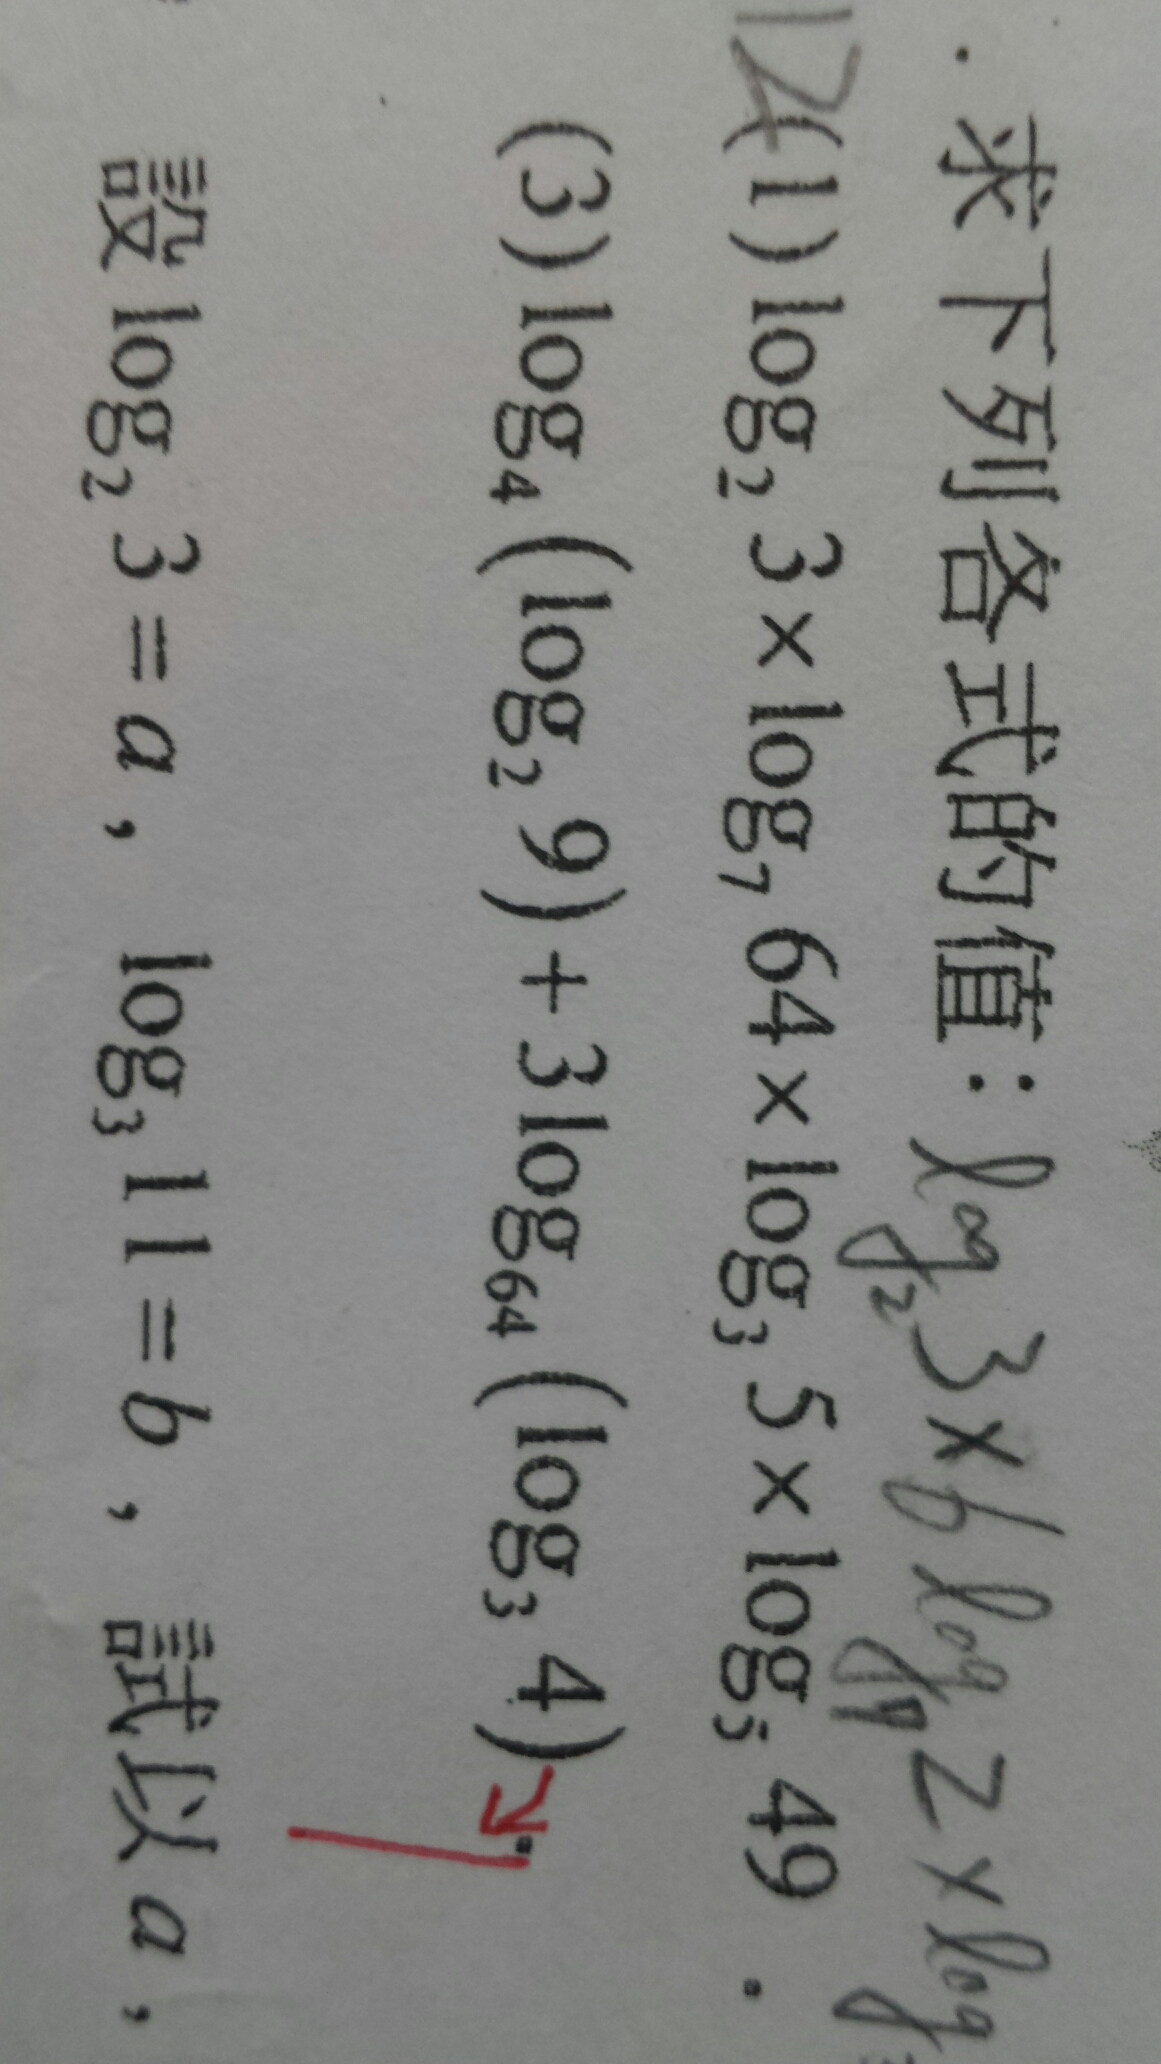 . 求下列各式的值：log₂3×6log₇2×log₃
12(1) log₂ 3 × log₇ 64 × log₃ 5 × log₅ 49 .
(3) log₄ (log₂ 9) + 3 log₆₄ (log₃ 4) .
設 log₂ 3 = a , log₃ 11 = b , 試以 a ,